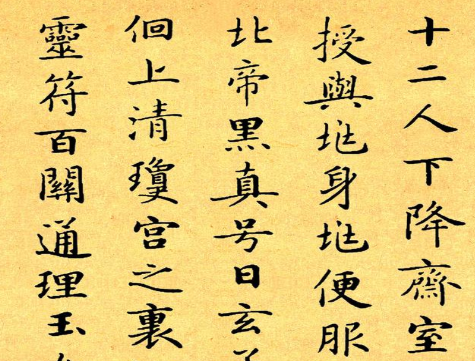 十二人下降齋室
授與身便服
北帝黑真号曰玄
佪上清瓊宮之裏
靈符百關通理玉